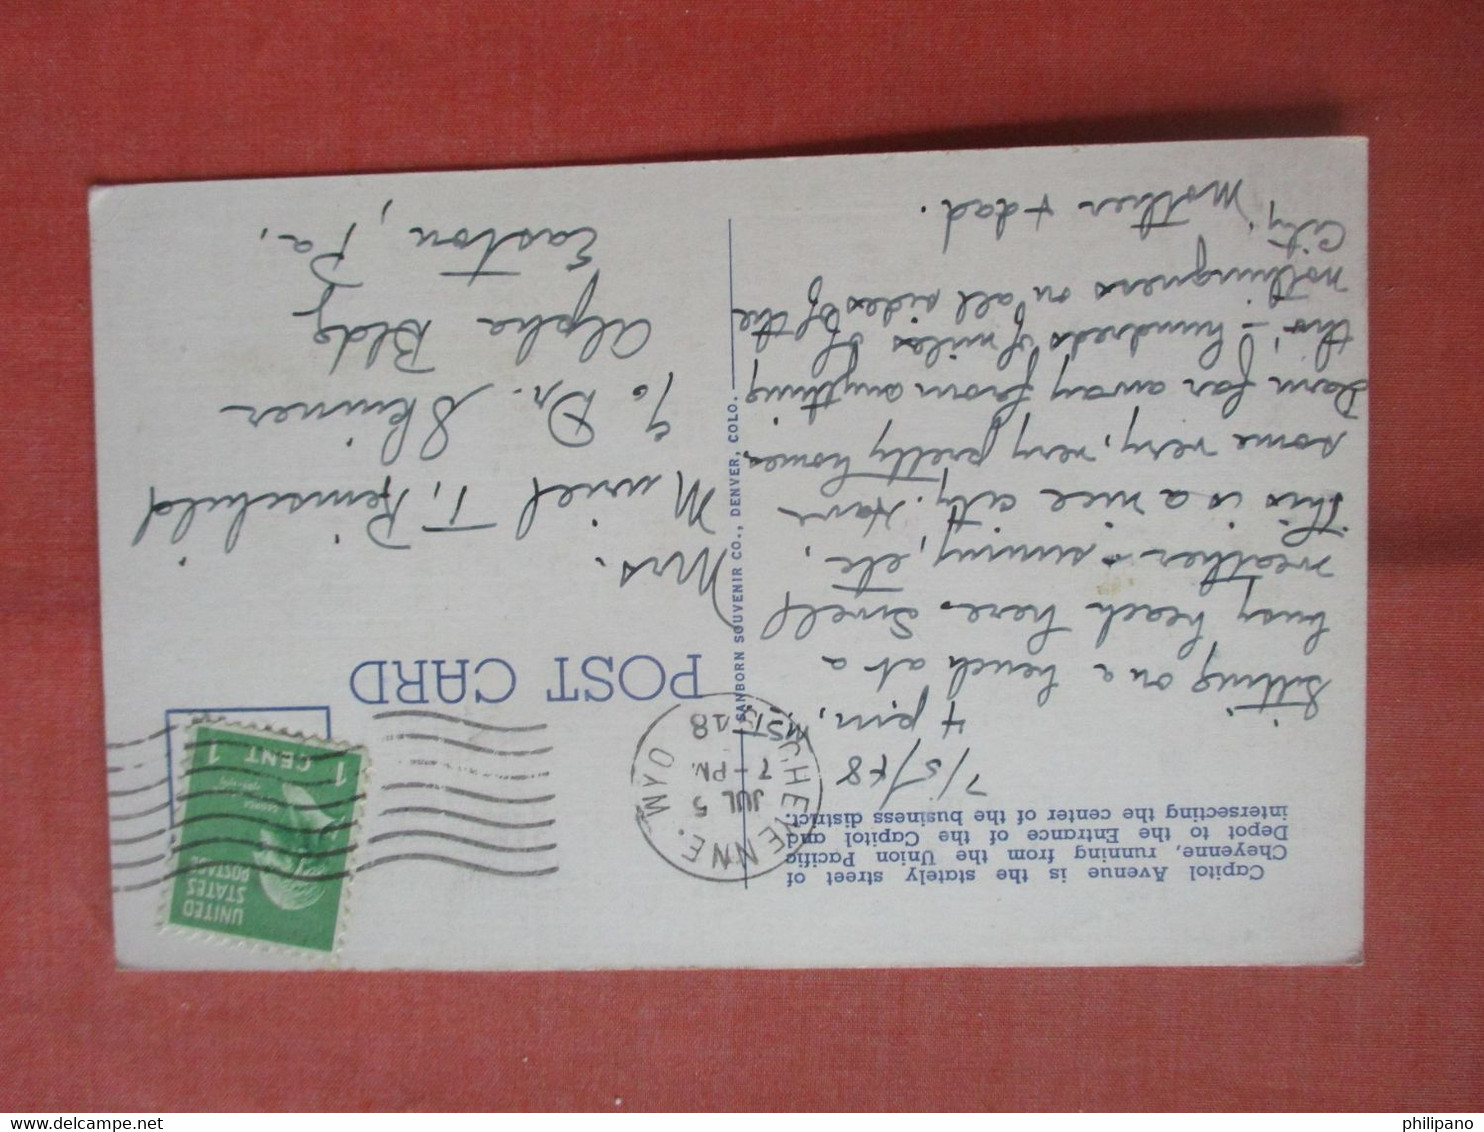 Capitol Avenue is the stately street of
Cheyenne, running from the Union Pacific
Depot to the Entrance of the Capitol and
intersecting the center of the business district.
7/5/48
4 pm,
Sitting on a bench at a
busy beach here. Swell
weather - sunny, etc.
This is a nice city. Have
some very, very pretty homes.
Darn far away from anything
tho' - hundreds of miles of
nothingness on all sides of the
City. Mother + dad.
SANBORN SOUVENIR CO., DENVER, COLO.
POST CARD
CHEYENNE. WYO
JUL 5
7 - PM
MST
UNITED
STATES
POSTAGE
1 CENT 1
Mrs.
Muriel T. Remschild
% Dr. Skinner
Alpha Bldg
Easton, Pa.
philipano